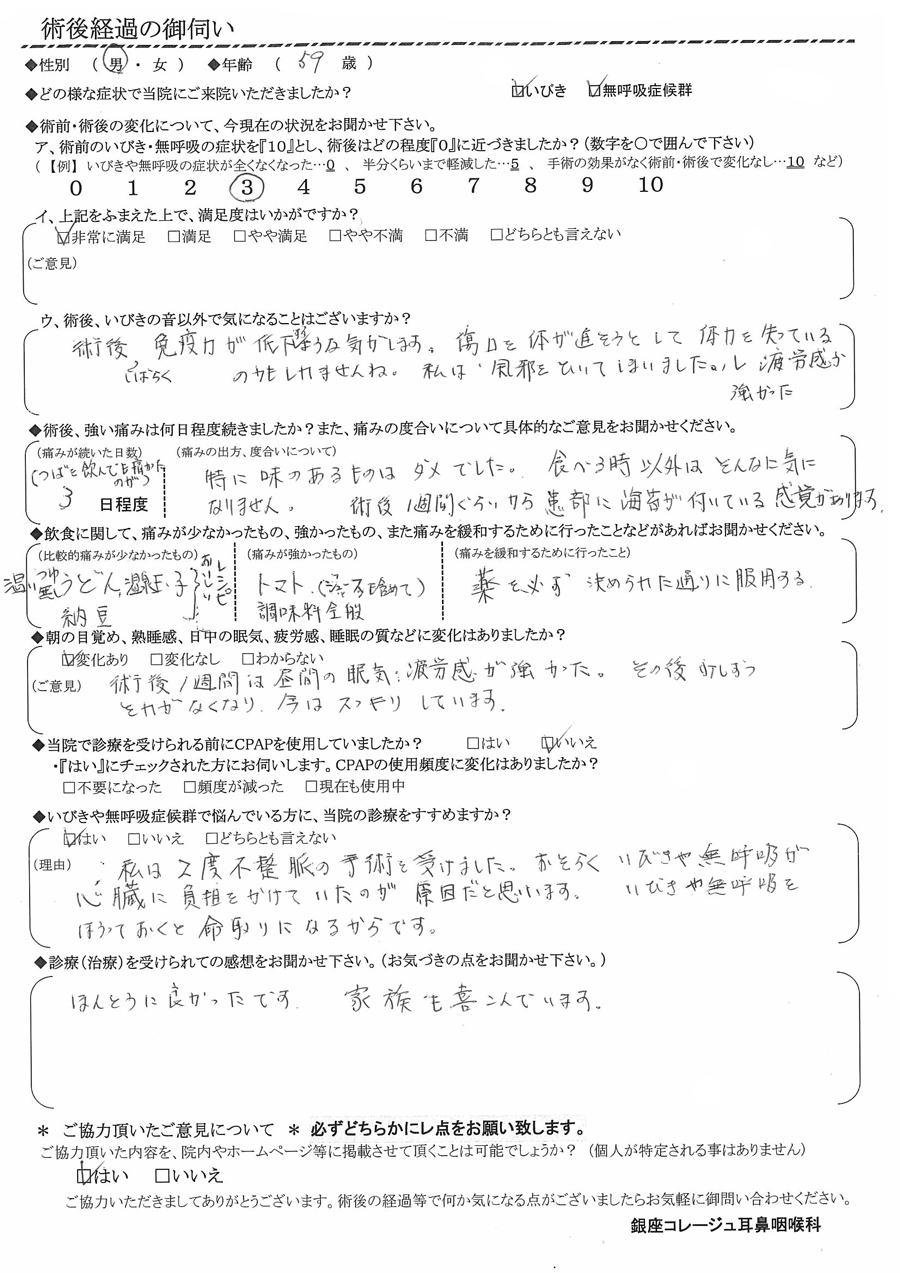 術後経過の御伺い
◆性別 （ 男 ・ 女 ） ◆年齢 （ 59 歳 ）
◆どの様な症状で当院にご来院いただきましたか？ ☑いびき ☑無呼吸症候群
◆術前・術後の変化について、今現在の状況をお聞かせ下さい。
ア、術前のいびき・無呼吸の症状を『10』とし、術後はどの程度『0』に近づきましたか？（数字を〇で囲んで下さい）
（【例】 いびきや無呼吸の症状が全くなくなった…0 、 半分くらいまで軽減した…5 、 手術の効果がなく術前・術後で変化なし…10 など）
0 1 2 ③ 4 5 6 7 8 9 10
イ、上記をふまえた上で、満足度はいかがですか？
☑非常に満足 □満足 □やや満足 □やや不満 □不満 □どちらとも言えない
（ご意見）
ウ、術後、いびきの音以外で気になることはございますか？
術後しばらく 免疫力が低下するような気がします。傷口を体が直そうとして 体力を失っている
のかもしれませんね。 私は 風邪をひいてしまいました。 疲労感が
強かった
◆術後、強い痛みは何日程度続きましたか？また、痛みの度合いについて具体的なご意見をお聞かせください。
（痛みが続いた日数） （痛みの出方、度合いについて）
（つばを飲んでも痛かったのが） 3 日程度
特に 味のあるものは ダメでした。 食べる時以外は そんなに気に
なりません。 術後1週間ぐらいから 患部に 海苔が付いている 感覚があります。
◆飲食に関して、痛みが少なかったもの、強かったもの、また痛みを緩和するために行ったことなどがあればお聞かせください。
（比較的痛みが少なかったもの） （痛みが強かったもの） （痛みを緩和するために行ったこと）
うどん、 納豆 おいしいレシピ
トマト（ジュースも含めて） 調味料全般
薬を必ず 決められた通りに服用する
◆朝の目覚め、熟睡感、日中の眠気、疲労感、睡眠の質などに変化はありましたか？
☑変化あり □変化なし □わからない
（ご意見） 術後1週間は昼間の眠気、疲労感が強かった。 その後 少しずつ
それがなくなり、今は スッキリ しています。
◆当院で診療を受けられる前にCPAPを使用していましたか？ □はい ☑いいえ
・『はい』にチェックされた方にお伺いします。CPAPの使用頻度に変化はありましたか？
□不要になった □頻度が減った □現在も使用中
◆いびきや無呼吸症候群で悩んでいる方に、当院の診療をすすめますか？
☑はい □いいえ □どちらとも言えない
（理由） 私は2度不整脈の手術を受けました。おそらく いびきや無呼吸が
心臓に 負担をかけていたのが 原因だと思います。 いびきや無呼吸を
ほうっておくと 命取りになるからです。
◆診療（治療）を受けられての感想をお聞かせ下さい。（お気づきの点をお聞かせ下さい。）
ほんとうに良かったです。 家族も喜こんでいます。
＊ ご協力頂いたご意見について ＊ 必ずどちらかにレ点をお願い致します。
ご協力頂いた内容を、院内やホームページ等に掲載させて頂くことは可能でしょうか？ （個人が特定される事はありません）
☑はい □いいえ
ご協力いただきましてありがとうございます。術後の経過等で何か気になる点がございましたらお気軽に御問い合わせください。
銀座コレージュ耳鼻咽喉科